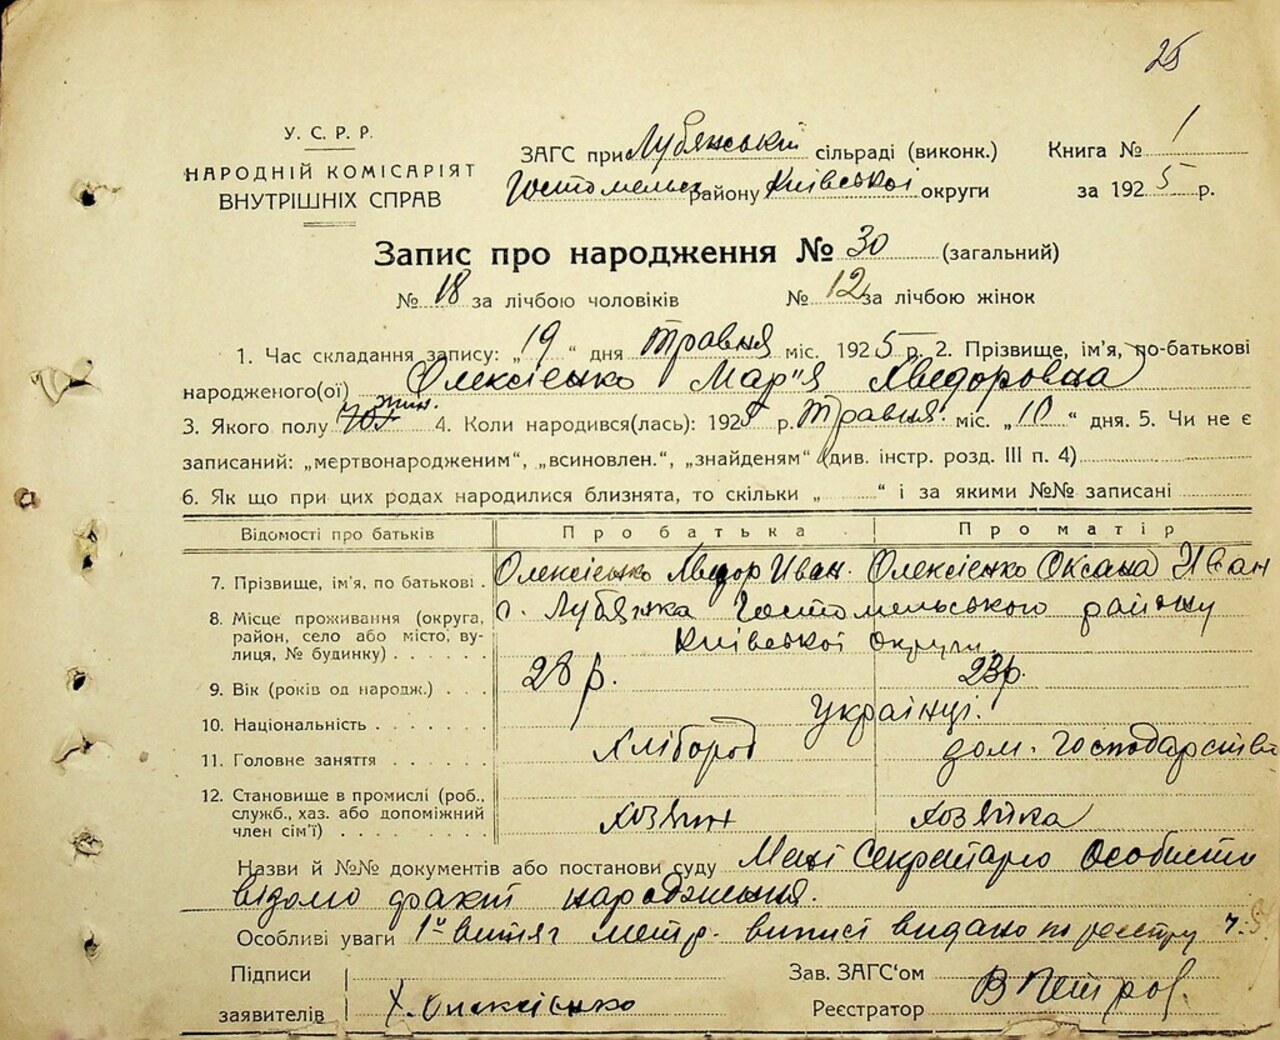 25
У. С. Р. Р.
НАРОДНІЙ КОМІСАРІЯТ
ВНУТРІШНІХ СПРАВ
ЗАГС при Лубянській сільраді (виконк.) Книга № 1
Гостомельс району Київської округи за 1925 р.
Запис про народження № 30 (загальний)
№ 18 за лічбою чоловіків № 12 за лічбою жінок
1. Час складання запису: „19“ дня травня міс. 1925 р. 2. Прізвище, ім'я, по-батькові
народженого(ої) Олексієнко Мар"я Хведоровна
3. Якого полу жін. 4. Коли народився(лась): 1925 р. травня міс. „10“ дня. 5. Чи не є
записаний: „мертвонародженим“, „всиновлен.“, „знайденям“ (див. інстр. розд. III п. 4)
6. Як що при цих родах народилися близнята, то скільки „ “ і за якими №№ записані
Відомості про батьків Про батька Про матір
7. Прізвище, ім'я, по батькові . Олексієнко Хведор Иван. Олексієнко Оксана Иван
8. Місце проживання (округа, с. Лубянка Гостомельського району
район, село або місто, ву- Київської округи.
лиця, № будинку) . . . . . .
9. Вік (років од народж.) . . . 28 р. 23 р.
10. Національність . . . . . . Українці.
11. Головне заняття . . . . . . Хлібород дом. господарство
12. Становище в промислі (роб.,
служб., хаз. або допоміжний
член сім'ї) . . . . . . . хозяин хозяйка
Назви й №№ документів або постанови суду Мені Секретарю Особисто
відомо факт народження.
Особливі уваги 1й витяг метр. виписі видано по реєстру ч.
Підписи Зав. ЗАГС'ом
заявителів Х. Олексієнко Реєстратор В Петров.